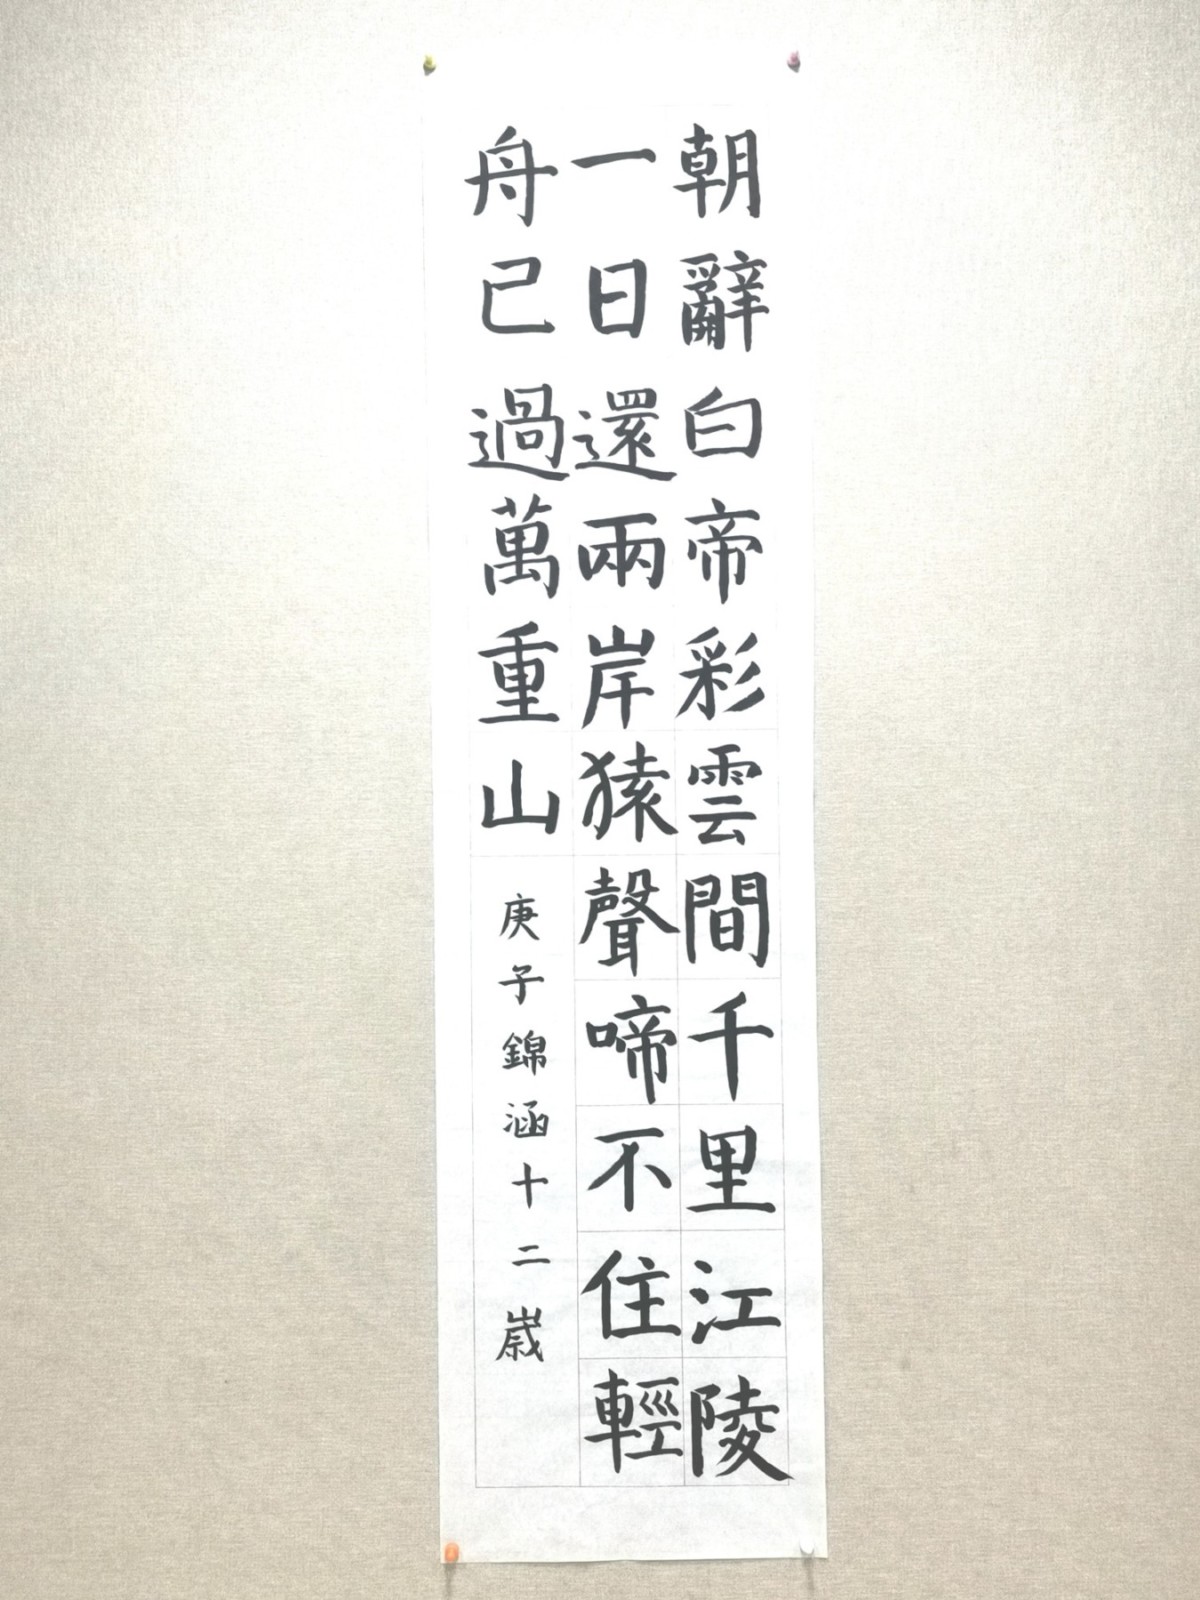 朝辭白帝彩雲間千里江陵
一日還兩岸猿聲啼不住輕
舟已過萬重山
庚子錦涵十二歲